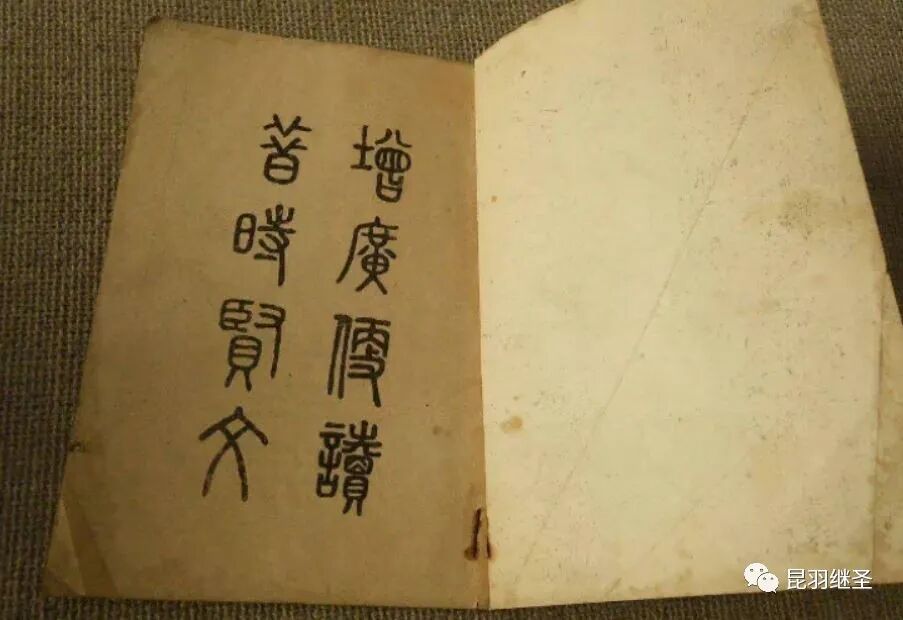 增廣便讀
昔時賢文
昆羽继圣